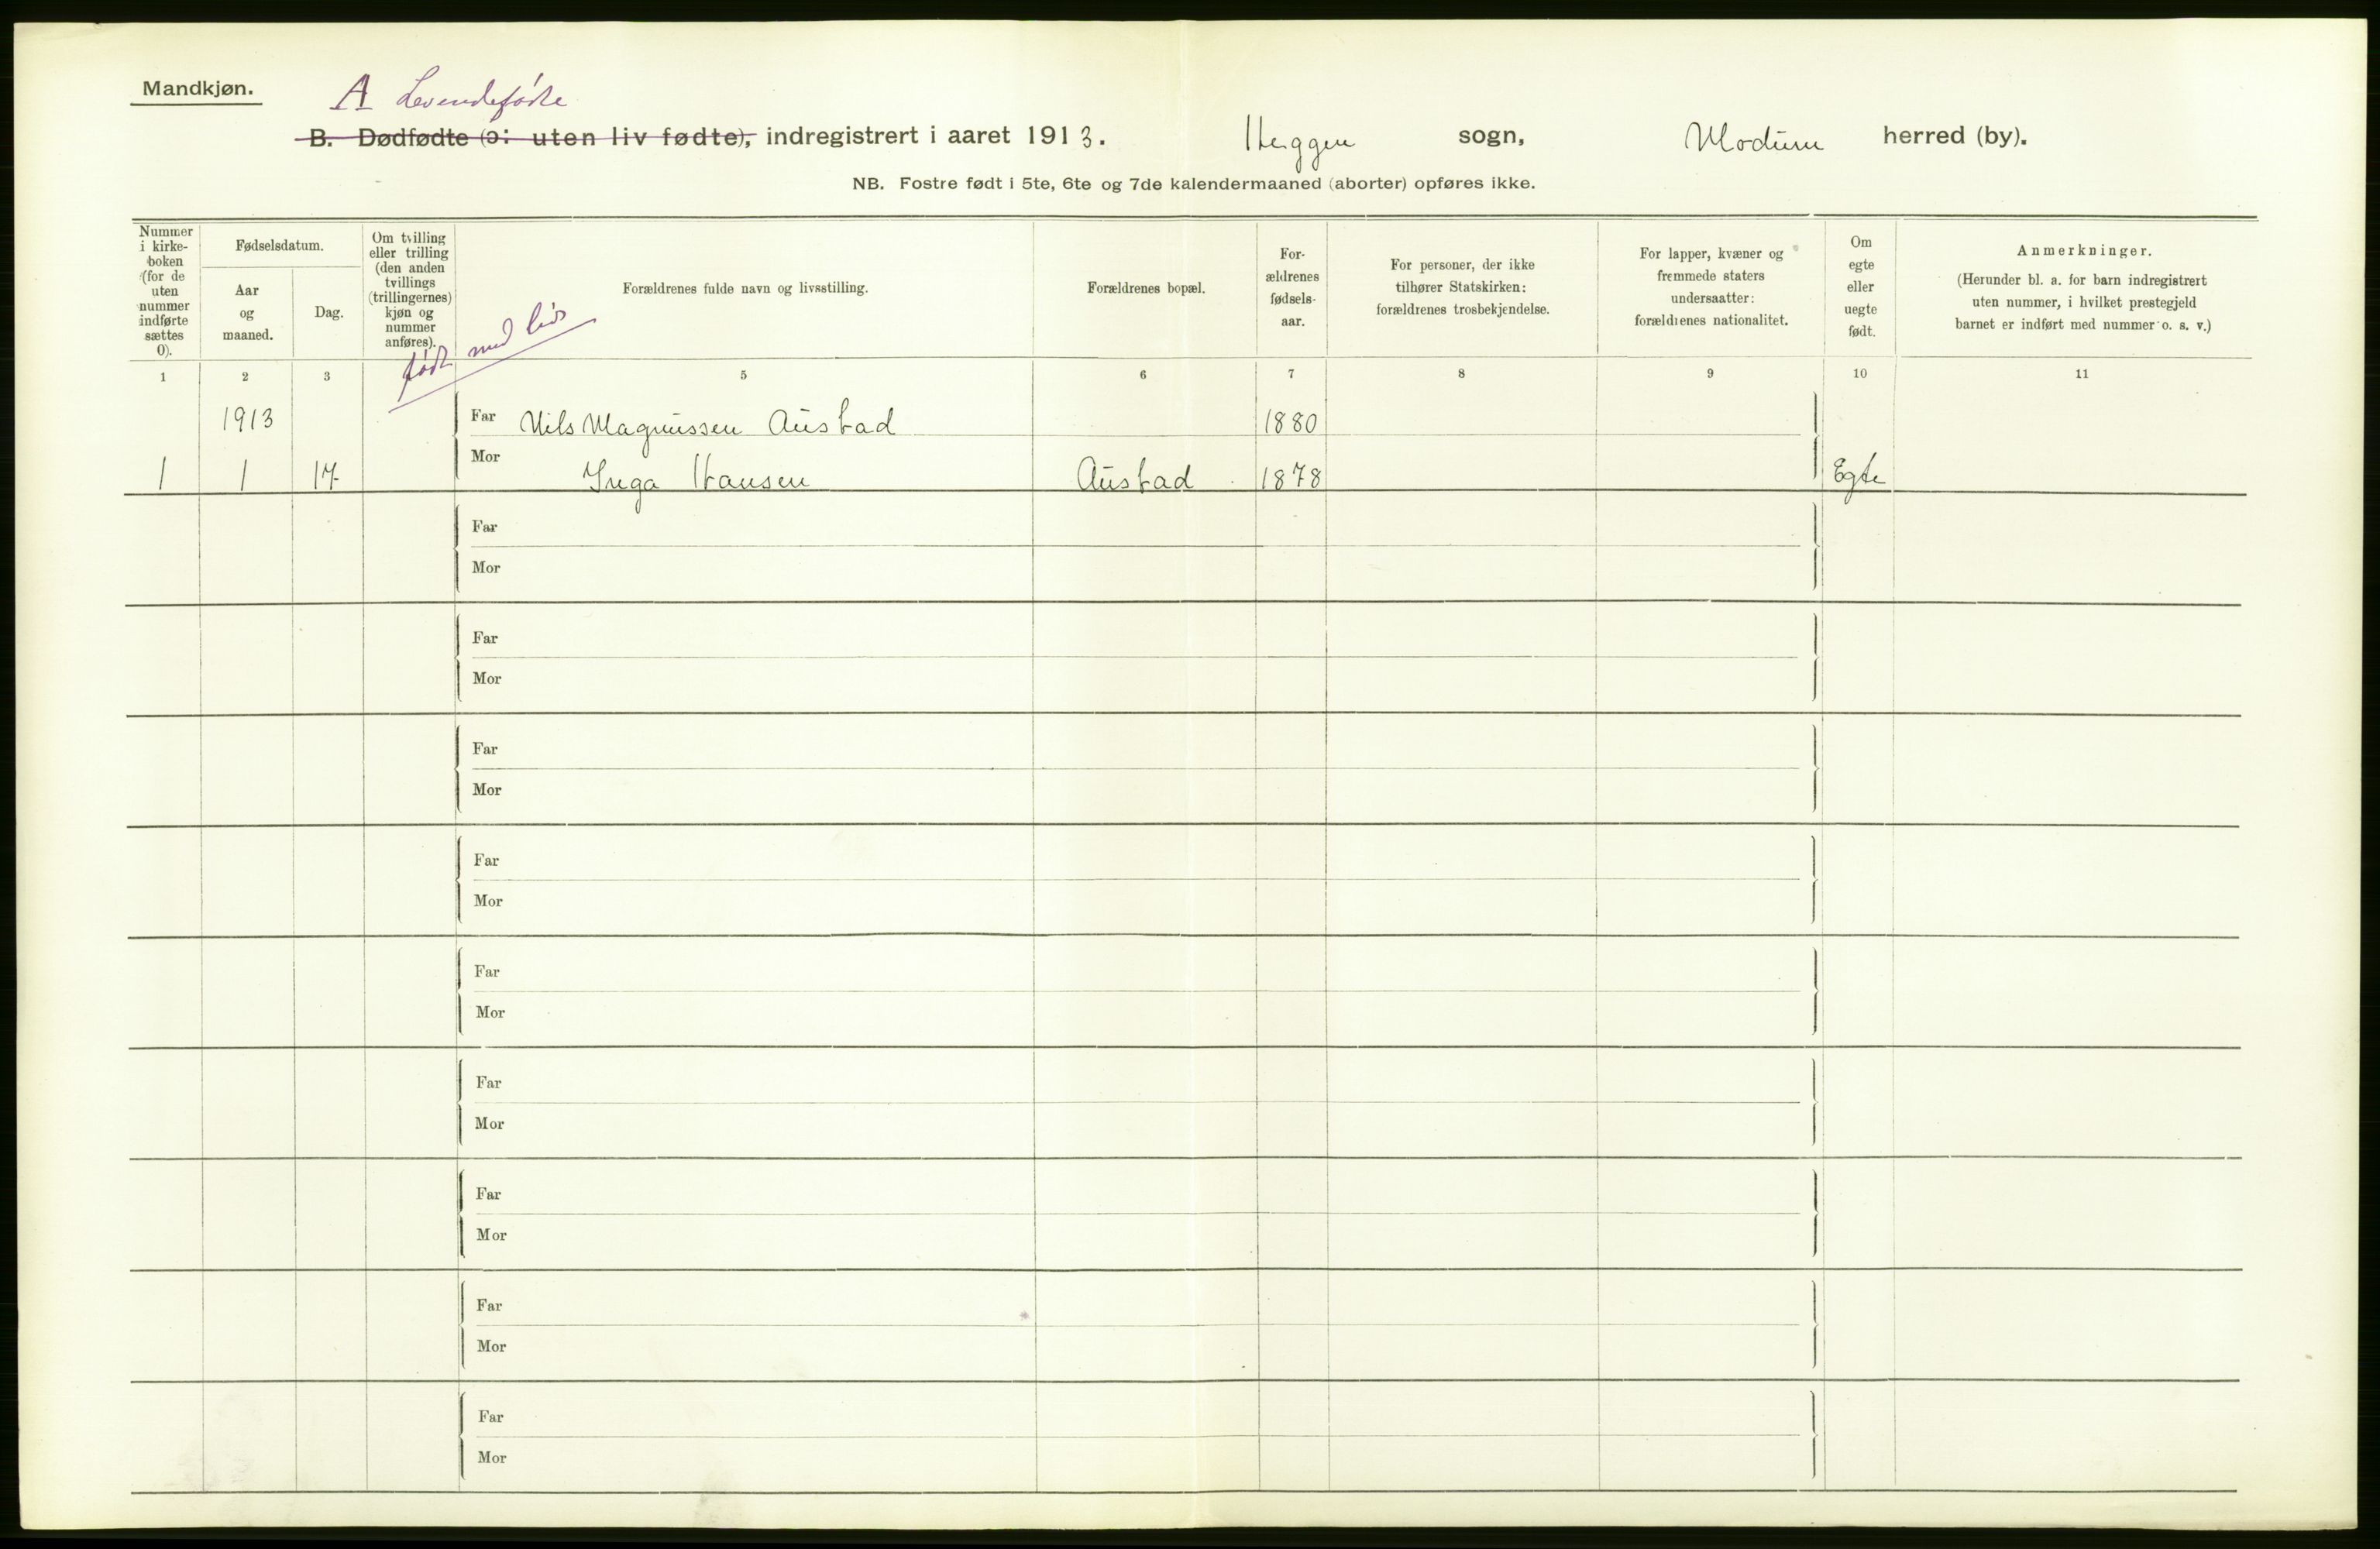 Mandkjøn.
A Levendefødte
B. Dødfødte (ɔ: uten liv fødte), indregistrert i aaret 1913. Heggen sogn, Modum herred (by).
NB. Fostre født i 5te, 6te og 7de kalendermaaned (aborter) opføres ikke.
Nummer
i kirke-
boken
(for de
uten
nummer
indførte
sættes
0).
Fødselsdatum.
Aar
og
maaned.
Dag.
Om tvilling
eller trilling
(den anden
tvillings
(trillingernes)
kjøn og
nummer
anføres).
Forældrenes fulde navn og livsstilling.
Forældrenes bopæl.
For-
ældrenes
fødsels-
aar.
For personer, der ikke
tilhører Statskirken:
forældrenes trosbekjendelse.
For lapper, kvæner og
fremmede staters
undersaatter:
forældrenes nationalitet.
Om
egte
eller
uegte
født.
Anmerkninger.
(Herunder bl. a. for barn indregistrert
uten nummer, i hvilket prestegjeld
barnet er indført med nummer o. s. v.)
født med liv
1 2 3 5 6 7 8 9 10 11
1913 Far Nils Magnussen Austad 1880
1 1 17 Mor Inga Hansen Austad 1878 Egte
Far
Mor
Far
Mor
Far
Mor
Far
Mor
Far
Mor
Far
Mor
Far
Mor
Far
Mor
Far
Mor